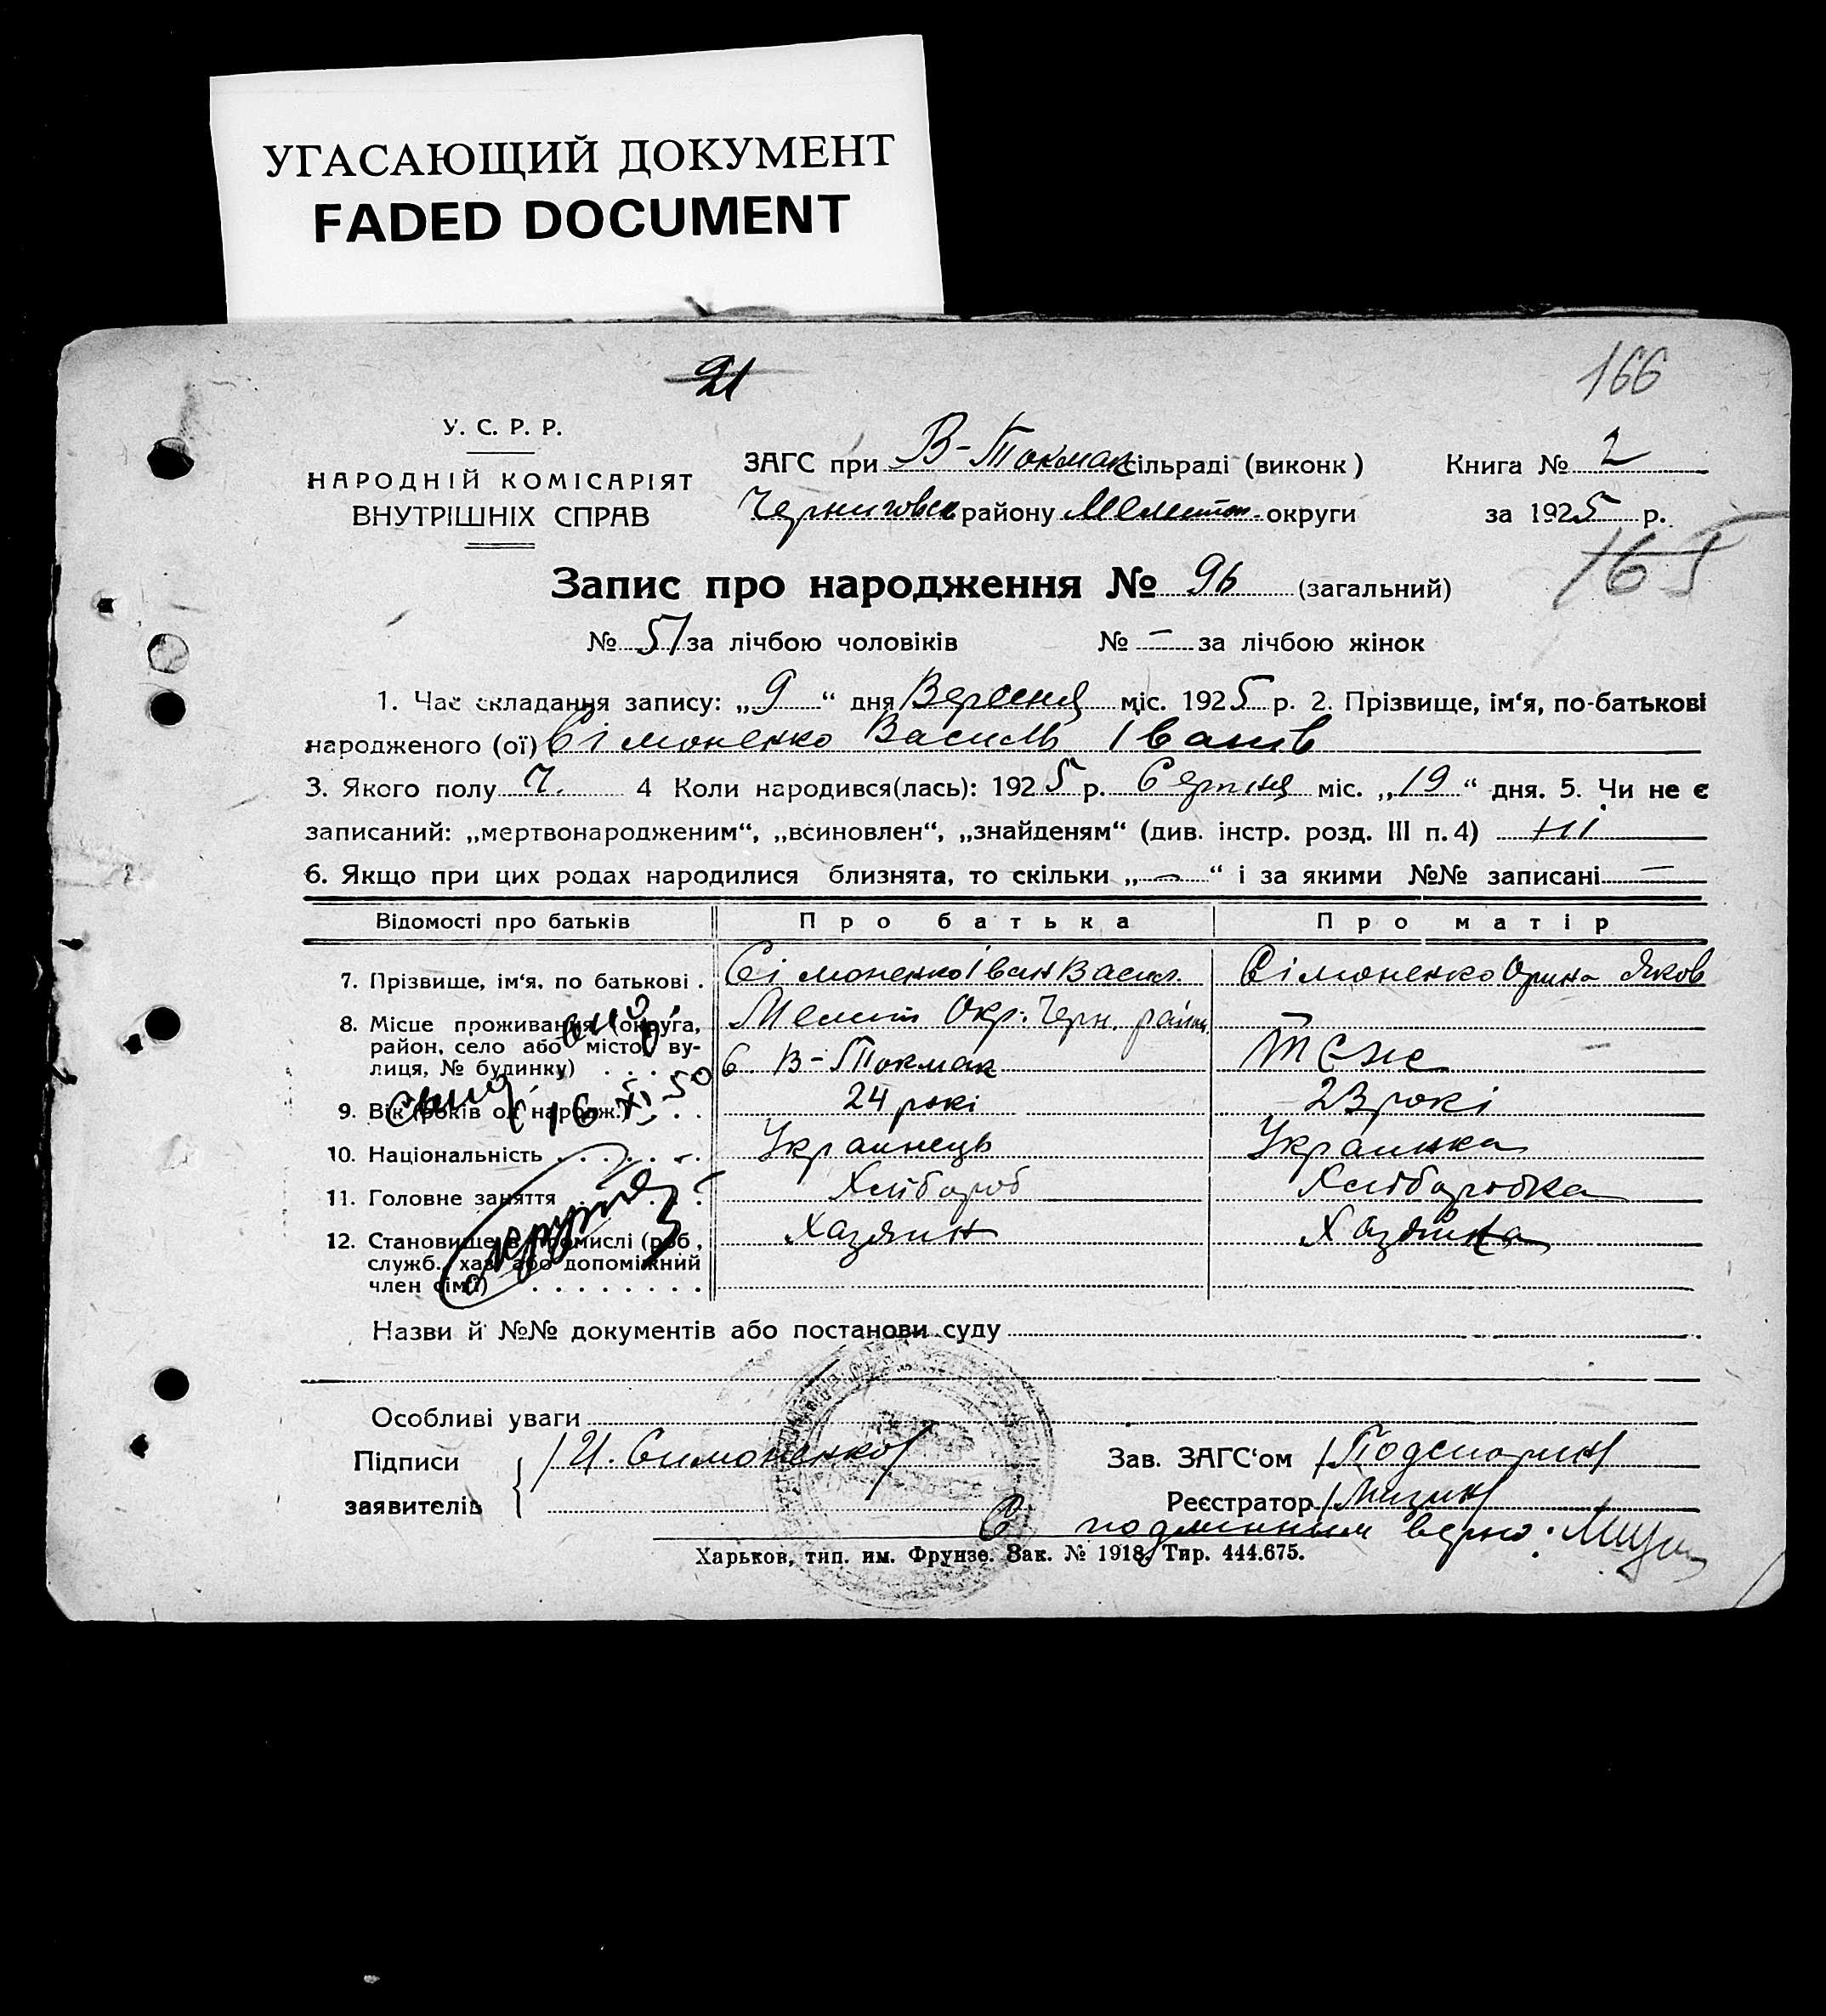 УГАСАЮЩИЙ ДОКУМЕНТ
FADED DOCUMENT
21
166
У. С. Р. Р.
НАРОДНІЙ КОМІСАРІЯТ
ВНУТРІШНІХ СПРАВ
ЗАГС при В-Токмак сільраді (виконк) Книга № 2
Черниговск району Мелитоп. округи за 1925 р.
165
Запис про народження № 96 (загальний)
№ 51 за лічбою чоловіків № – за лічбою жінок
1. Час складання запису: „9“ дня Вересня міс. 1925 р. 2. Прізвище, ім‘я, по-батькові
народженого (ої) Сімоненко Василь Іванів
3. Якого полу Ч. 4 Коли народився(лась): 1925 р. Серпня міс. „19“ дня. 5. Чи не є
записаний: „мертвонародженим“, „всиновлен“, „знайденям“ (див. інстр. розд. III п. 4) ні
6. Якщо при цих родах народилися близнята, то скільки „–“ і за якими №№ записані –
Відомості про батьків Про батька Про матір
7. Прізвище, ім‘я, по батькові . Сімоненко Іван Васил. Сімоненко Орина Яков
8. Місце проживання (округа, район, село або місто, ву- лиця, № будинку) . . . Мелит Окр. Черн. район.
С. В-Токмак Теже
9. Вік (років од народж.) . . . 24 рокі 23 рокі
16 XI 50
10. Національність . . . . . . . Украинець Украинка
11. Головне заняття . . . . . . Хлібороб Хліборобка
12. Становище в промислі (роб., служб., хаз. або допоміжний член сім‘ї) . . . . . . . . Хазяин Хазяйка
Назви й №№ документів або постанови суду
Особливі уваги
Підписи заявителів И. Симоненко
Зав. ЗАГС‘ом
Реєстратор Мизин
С подлинным верно:
Харьков, тип. им. Фрунзе. Зак. № 1918. Тир. 444.675.